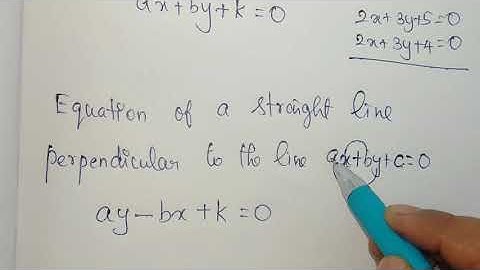 ax+by+k=0
2x+3y+5=0
2x+3y+4=0
Equation of a straight line
perpendicular to the line ax+by+c=0
ay-bx+k=0